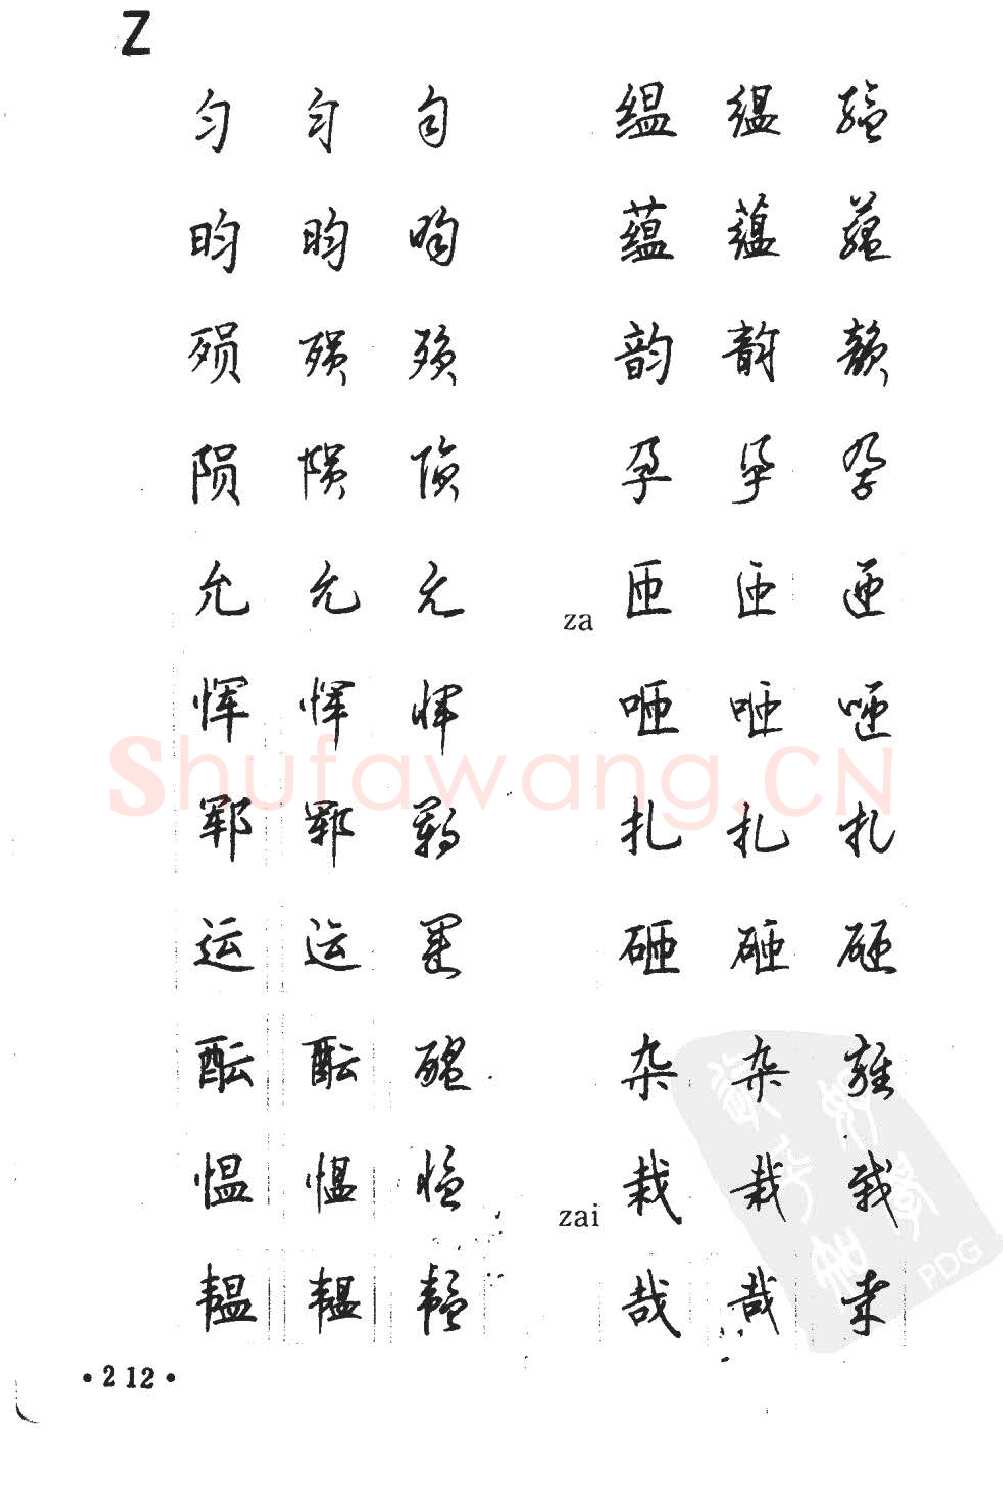 Z
匀 匀 匀 缊 缊 缊
昀 昀 昀 蕴 蕴 蕴
殒 殒 殒 韵 韵 韵
陨 陨 陨 孕 孕 孕
允 允 允 za 匝 匝 匝
恽 恽 恽 咂 咂 咂
郓 郓 郓 扎 扎 扎
运 运 運 砸 砸 砸
酝 酝 醖 杂 杂 雜
愠 愠 愠 zai 栽 栽 栽
韫 韫 韫 哉 哉 哉
·212·
Shufawang.CN
PDG